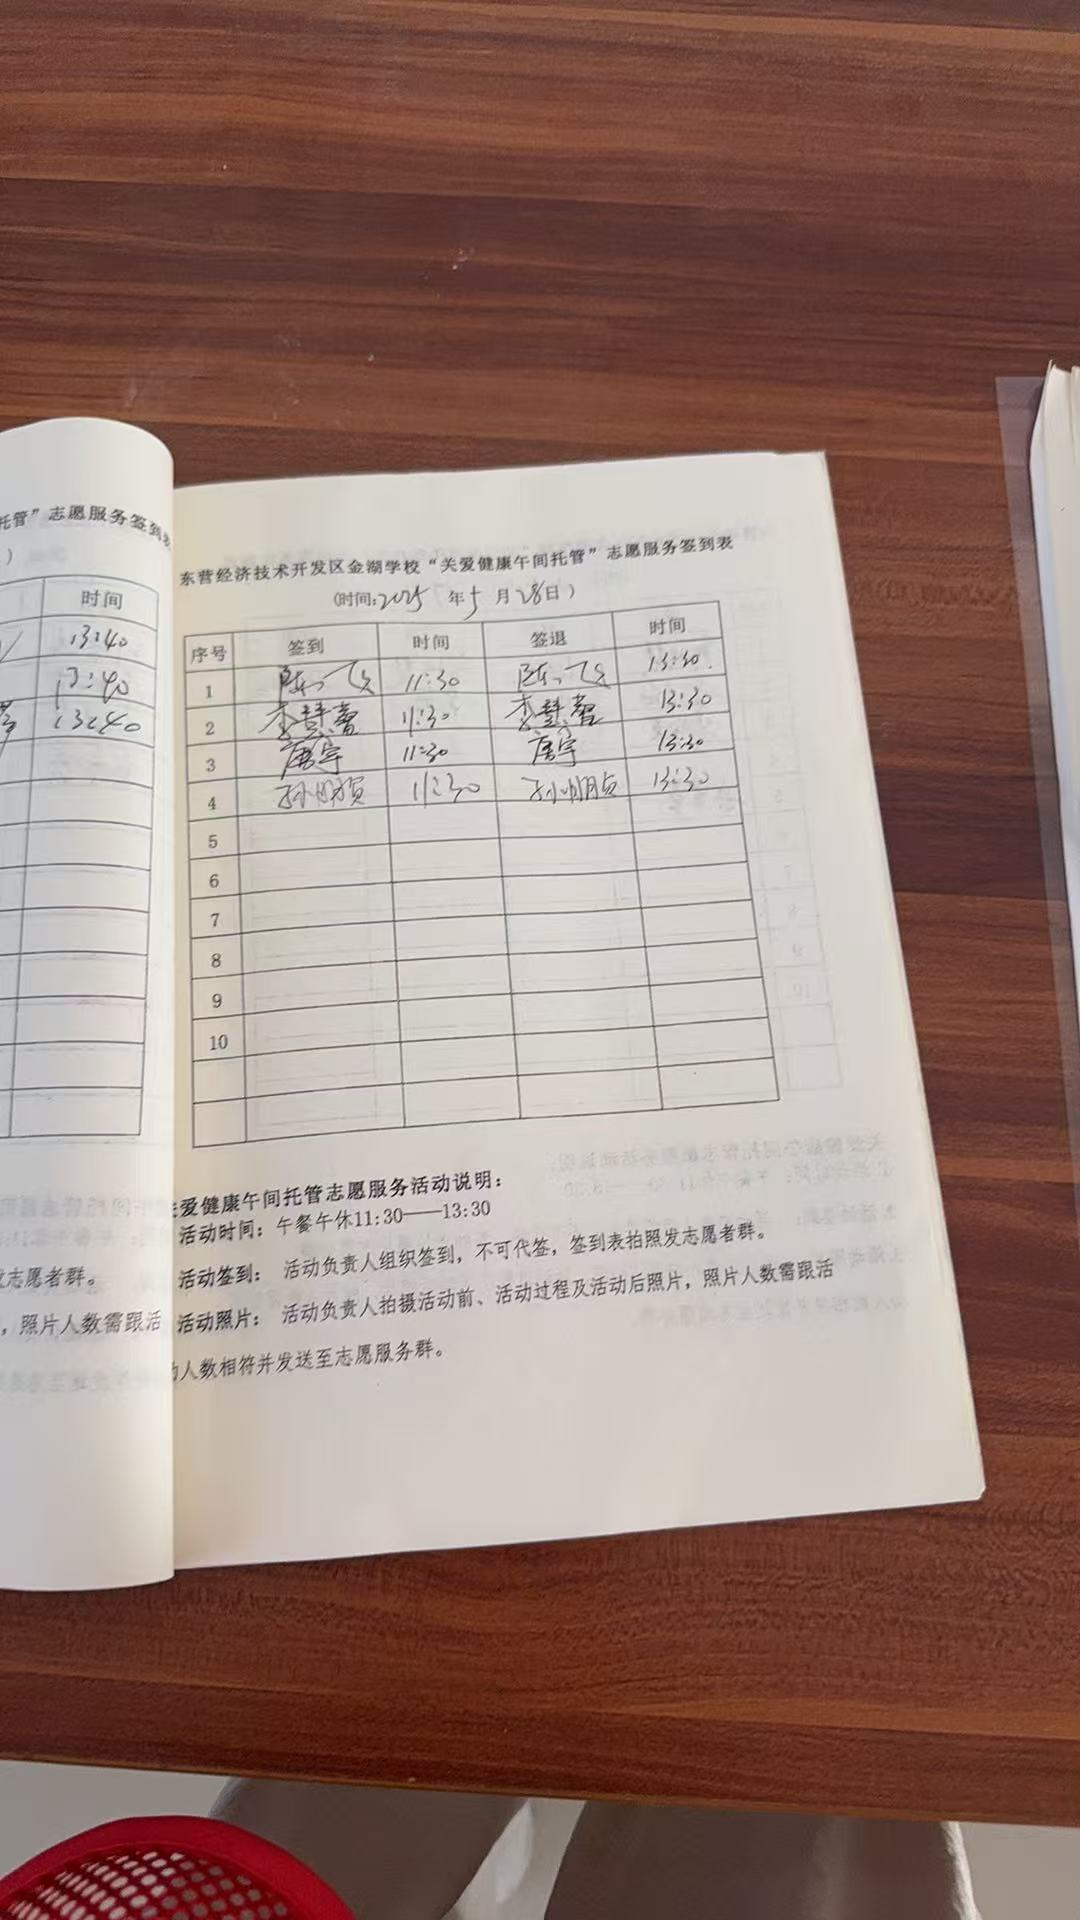 托管”志愿服务签到表
)
时间
13:40
13:40
13:40
发志愿者群。
，照片人数需跟活
东营经济技术开发区金湖学校“关爱健康午间托管”志愿服务签到表
(时间:2025 年 5 月 28日)
序号 签到 时间 签退 时间
1 陈 11:30 陈 13:30.
2 李慧 11:30 李慧 13:30
3 唐宇 11:30 唐宇 13:30
4 孙明贞 11:30 孙明贞 13:30
5
6
7
8
9
10
关爱健康午间托管志愿服务活动说明：
活动时间：午餐午休11:30——13:30
活动签到：活动负责人组织签到，不可代签，签到表拍照发志愿者群。
活动照片：活动负责人拍摄活动前、活动过程及活动后照片，照片人数需跟活
动人数相符并发送至志愿服务群。